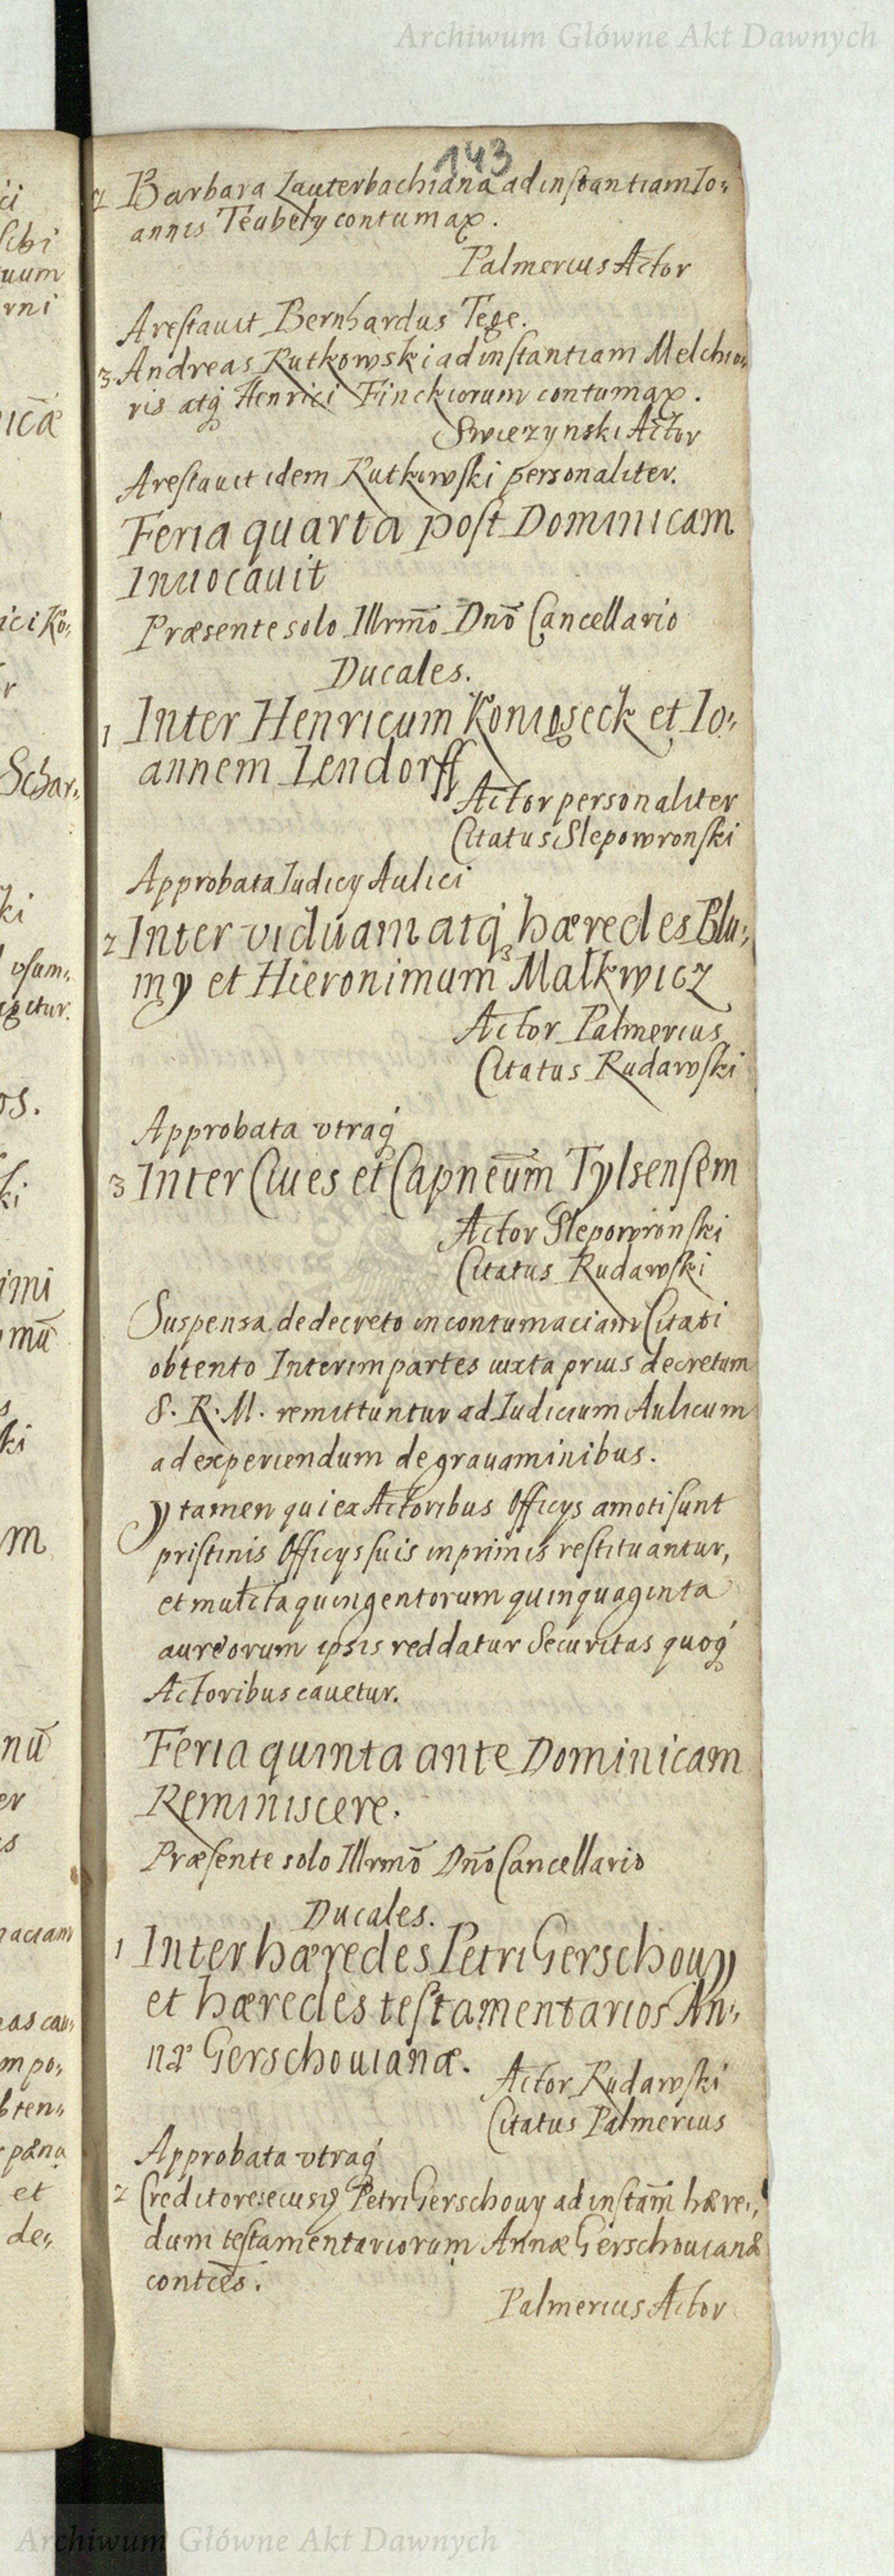 Archiwum Główne Akt Dawnych
143
2 Barbara Lauterbachiana ad instantiam Io„
annis Teubely contumax.
Palmerius Actor
Arestauit Bernhardus Tege.
3 Andreas Rutkowski ad instantiam Melchio„
ris atq́ Henrici Finckiorum contumax.
Swiezynski Actor
Arestauit idem Rutkowski personaliter.
Feria quarta post Dominicam
Inuocauit
Præsente solo Illrm̄o Dn̄o Cancellario
Ducales.
1 Inter Henricum Konigseck et Io„
annem Lendorff
Actor personaliter
Citatus Slepowronski
Approbata Iudicy Aulici
2 Inter viduam atq́ hæredes Blu„
my et Hieronimum Malkwicz
Actor Palmerius
Citatus Rudawski
Approbata vtraq́
3 Inter Ciues et Capneūm Tylsensem
Actor Slepowronski
Citatus Rudawski
Suspensa de decreto in contumaciam Citati
obtento Interim partes iuxta prius decretum
S. R. M. remittuntur ad Iudicium Aulicum
ad experiendum de grauaminibus.
y tamen qui ex Actoribus Officys amoti sunt
pristinis Officys suis inprimis restituantur,
et mulcta quingentorum quinquaginta
aureorum ipsis reddatur Securitas quoq́
Actoribus cauetur.
Feria quinta ante Dominicam
Reminiscere.
Præsente solo Illrmō Dn̄o Cancellario
Ducales.
1 Inter hæredes Petri Gerschouy
et hæredes testamentarios An„
næ Gerschouianæ.
Actor Rudawski
Citatus Palmerius
Approbata vtraq́
2 Creditores Petri Gerschouy ad instam̄ hære„
dum testamentariorum Annæ Gerschouianæ
contēs.
Palmerius Actor
Archiwum Główne Akt Dawnych